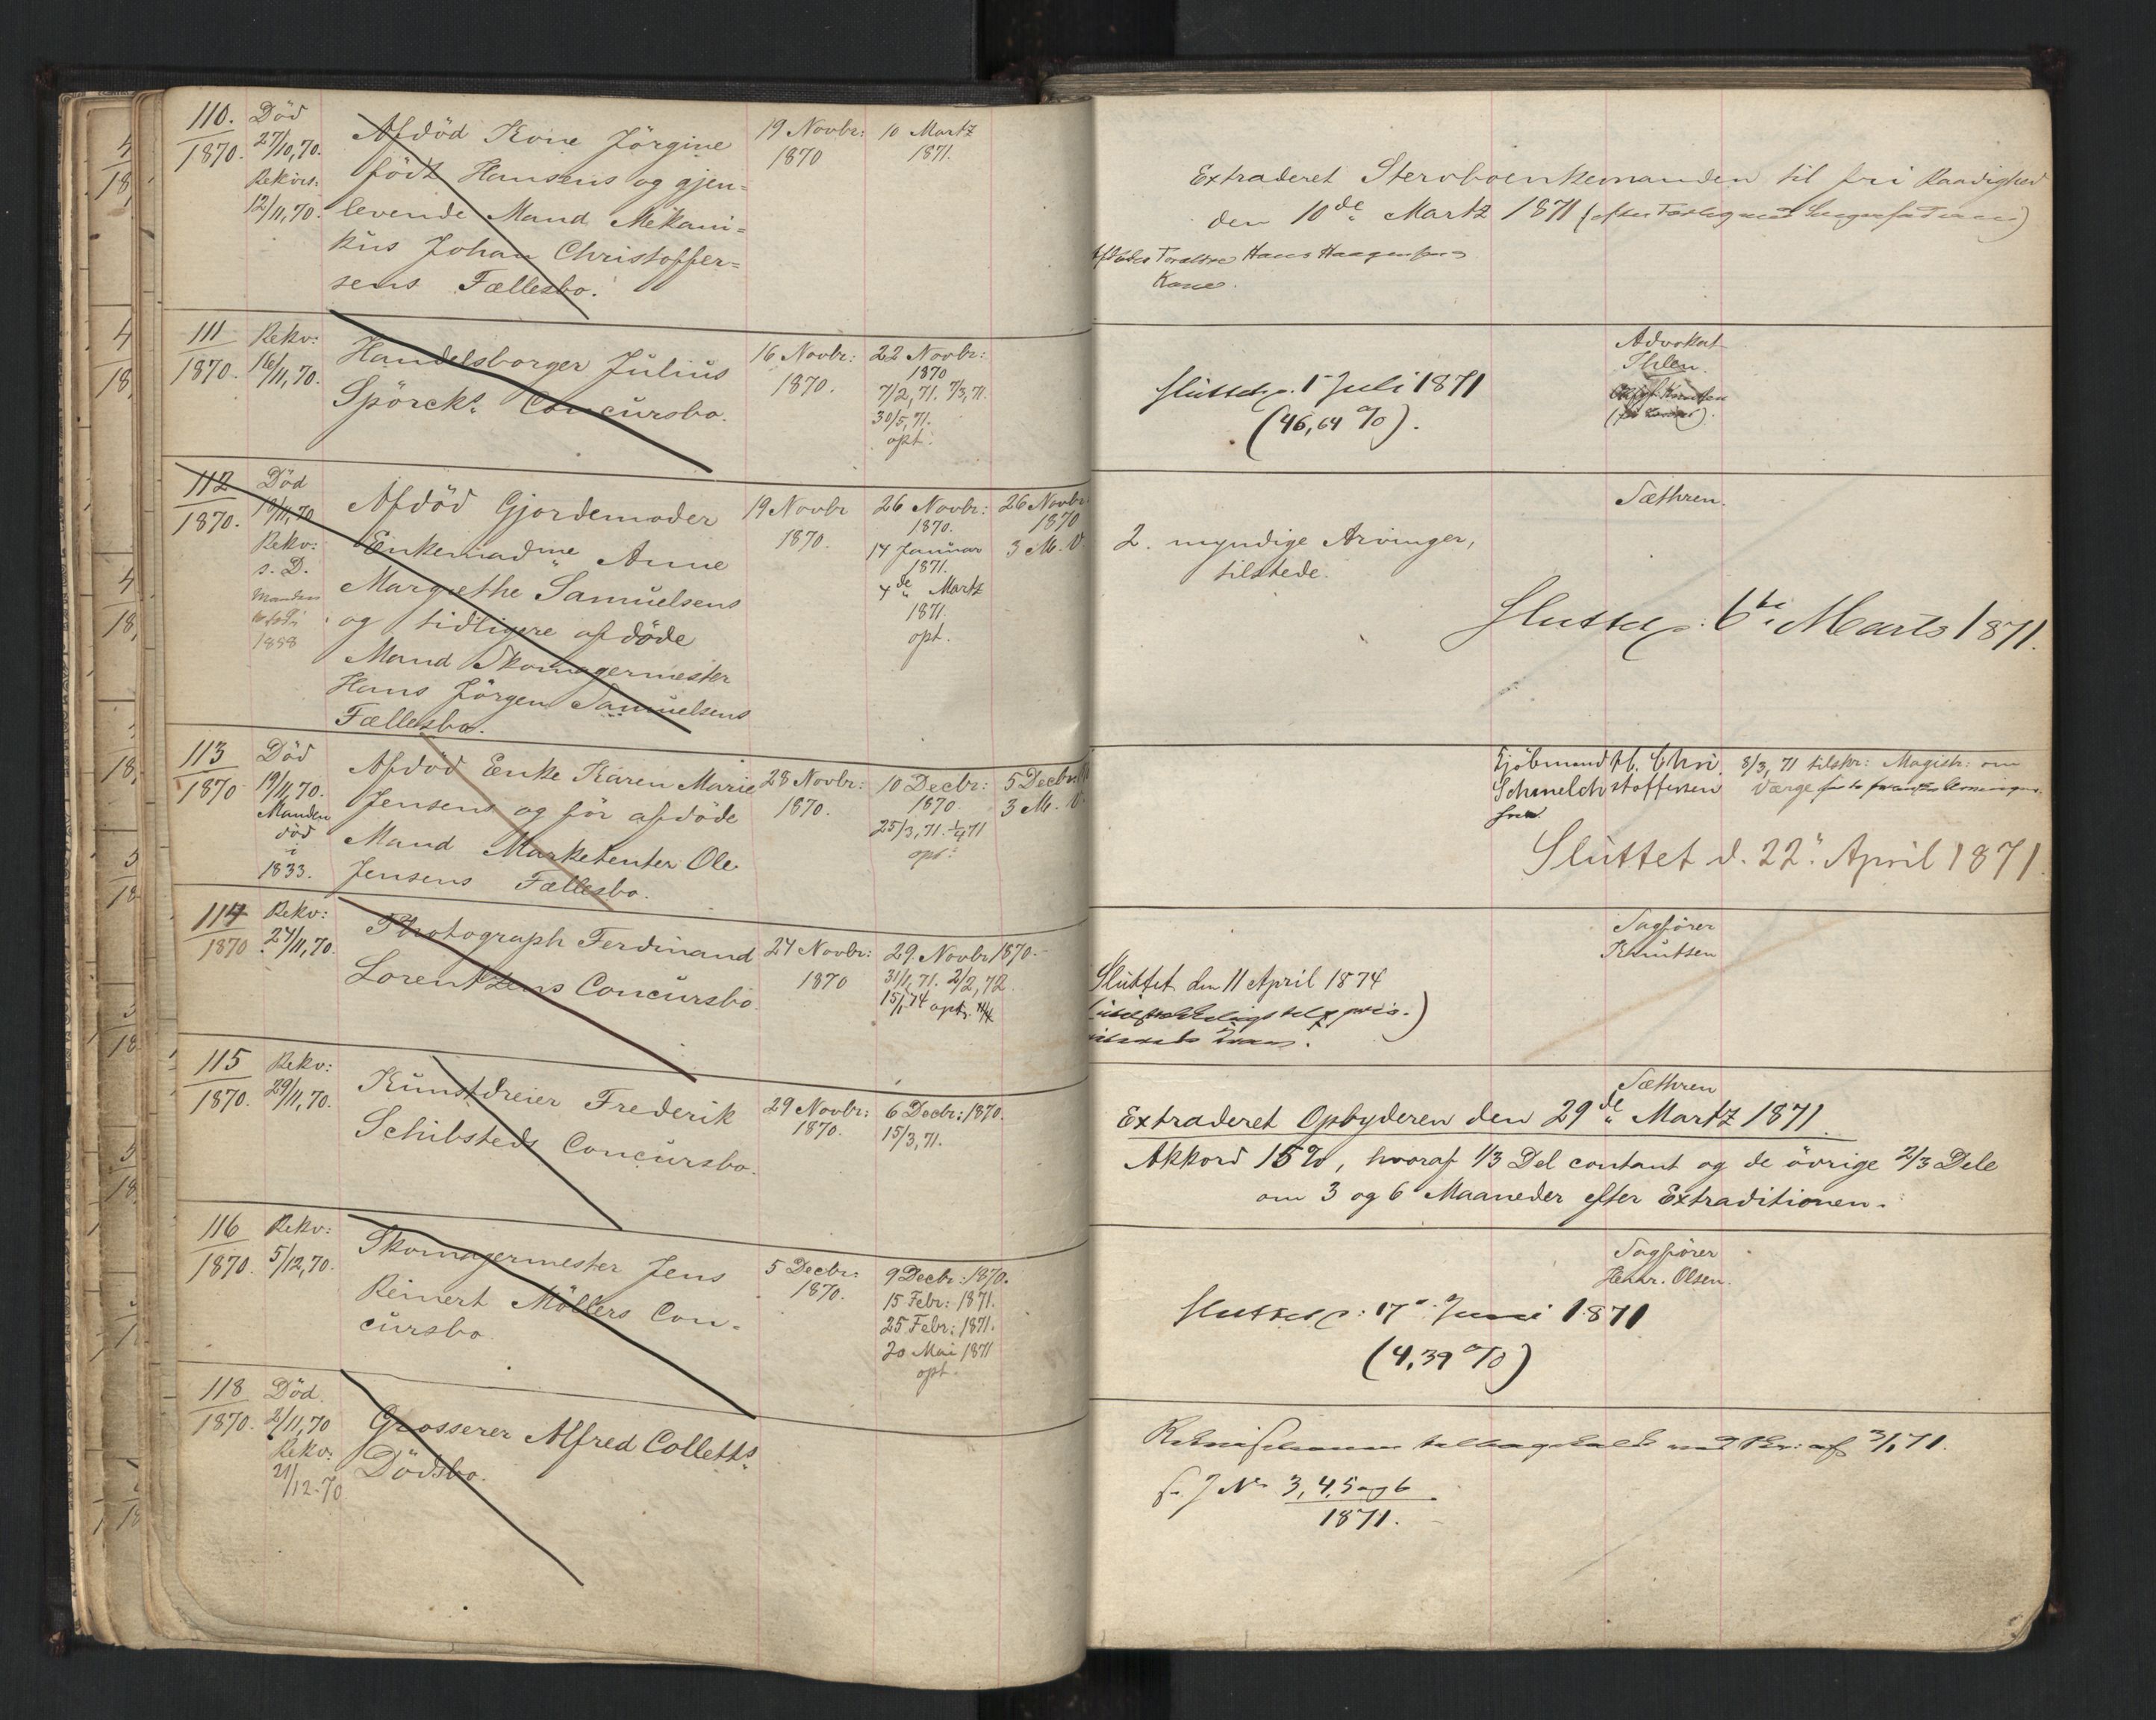 110.
1870.
Död
27/10,70.
Rekvis:
12/11,70.
Afdöd Kone Jörgine
födt Hansens og gjen=
levende Mand Mekani=
kus Johan Christoffer=
sens Fællesbo.
19 Novbr:
1870
10 Martz
1871.
Extraderet Sterboenkemanden til fri Raadighed
den 10de Martz 1871
Hans Haagensens
Kone.
111
1870.
Rekv:
16/11,70.
Handelsborger Julius
Spörcks Concursbo.
16 Novbr:
1870.
22 Novbr:
1870
7/2,71. 7/3,71.
30/5,71.
opt.
Sluttet d. 1 Juli 1871
(46,64 %).
Advokat
Ihlen.
112
1870.
Död
18/11,70
Rekv:
s. D.
Manden
1858
Afdöd Gjordemoder
Enkemadme Anne
Margrethe Samuelsens
og tidligere afdöde
Mand Skomagermester
Hans Jörgen Samuelsens
Fællesbo.
19 Novbr
1870.
26 Novbr:
1870.
14 Januar
1871.
4de Martz
1871.
opt.
26 Novbr
1870
3 M. V.
2. myndige Arvinger,
tilstede.
Sæthren.
Sluttet d. 6te Marts 1871.
113
1870
Död
19/11,70.
Manden
död
i
1833.
Afdöd Enke Karen Marie
Jensens og för afdöde
Mand Marketenter Ole
Jensens Fællesbo.
28 Novbr:
1870.
10 Decbr:
1870.
25/3,71. 1/4 71
opt:
5 Decbr
3 M. V.
Kjöbmand H. Chri
Schmelch stoffersen
8/3,71 tilskr: Magistr: om
Værge
Sluttet d. 22. April 1871
114
1870
Rekv:
24/11,70.
Photograph Ferdinand
Lorentzens Concursbo.
24 Novbr:
1870
29. Novbr 1870.
31/1,71. 2/2,72.
15/1 74 opt.
Sagförer
Knutsen
Sluttet den 11 April 1874
115
1870.
Rekv:
29/11,70.
Kunstdreier Frederik
Schibsteds Concursbo.
29 Novbr:
1870.
6 Decbr: 1870.
15/3,71.
Sæthren
Extraderet Opbyderen den 29de Martz 1871.
Akkord 15%, hvoraf 1/3 Del contant og de övrige 2/3 Dele
om 3 og 6 Maaneder efter Extraditionen.
116
1870.
Rekv:
5/12,70.
Skomagermester Jens
Reinert Möllers Con=
cursbo.
5 Decbr:
1870.
9 Decbr: 1870.
15 Febr: 1871.
25 Febr: 1871.
20 Mai 1871
opt.
Sagförer
Henr. Olsen.
Sluttet d. 17. Juni 1871
(4,39 %)
118
1870.
Död
2/11,70
Rekv:
21/12-70
Grosserer Alfred Colletts
Dödsbo.
tilbagekaldt ved Skr: af 3/1,71.
f. J No 3,4,5 og 6
1871.